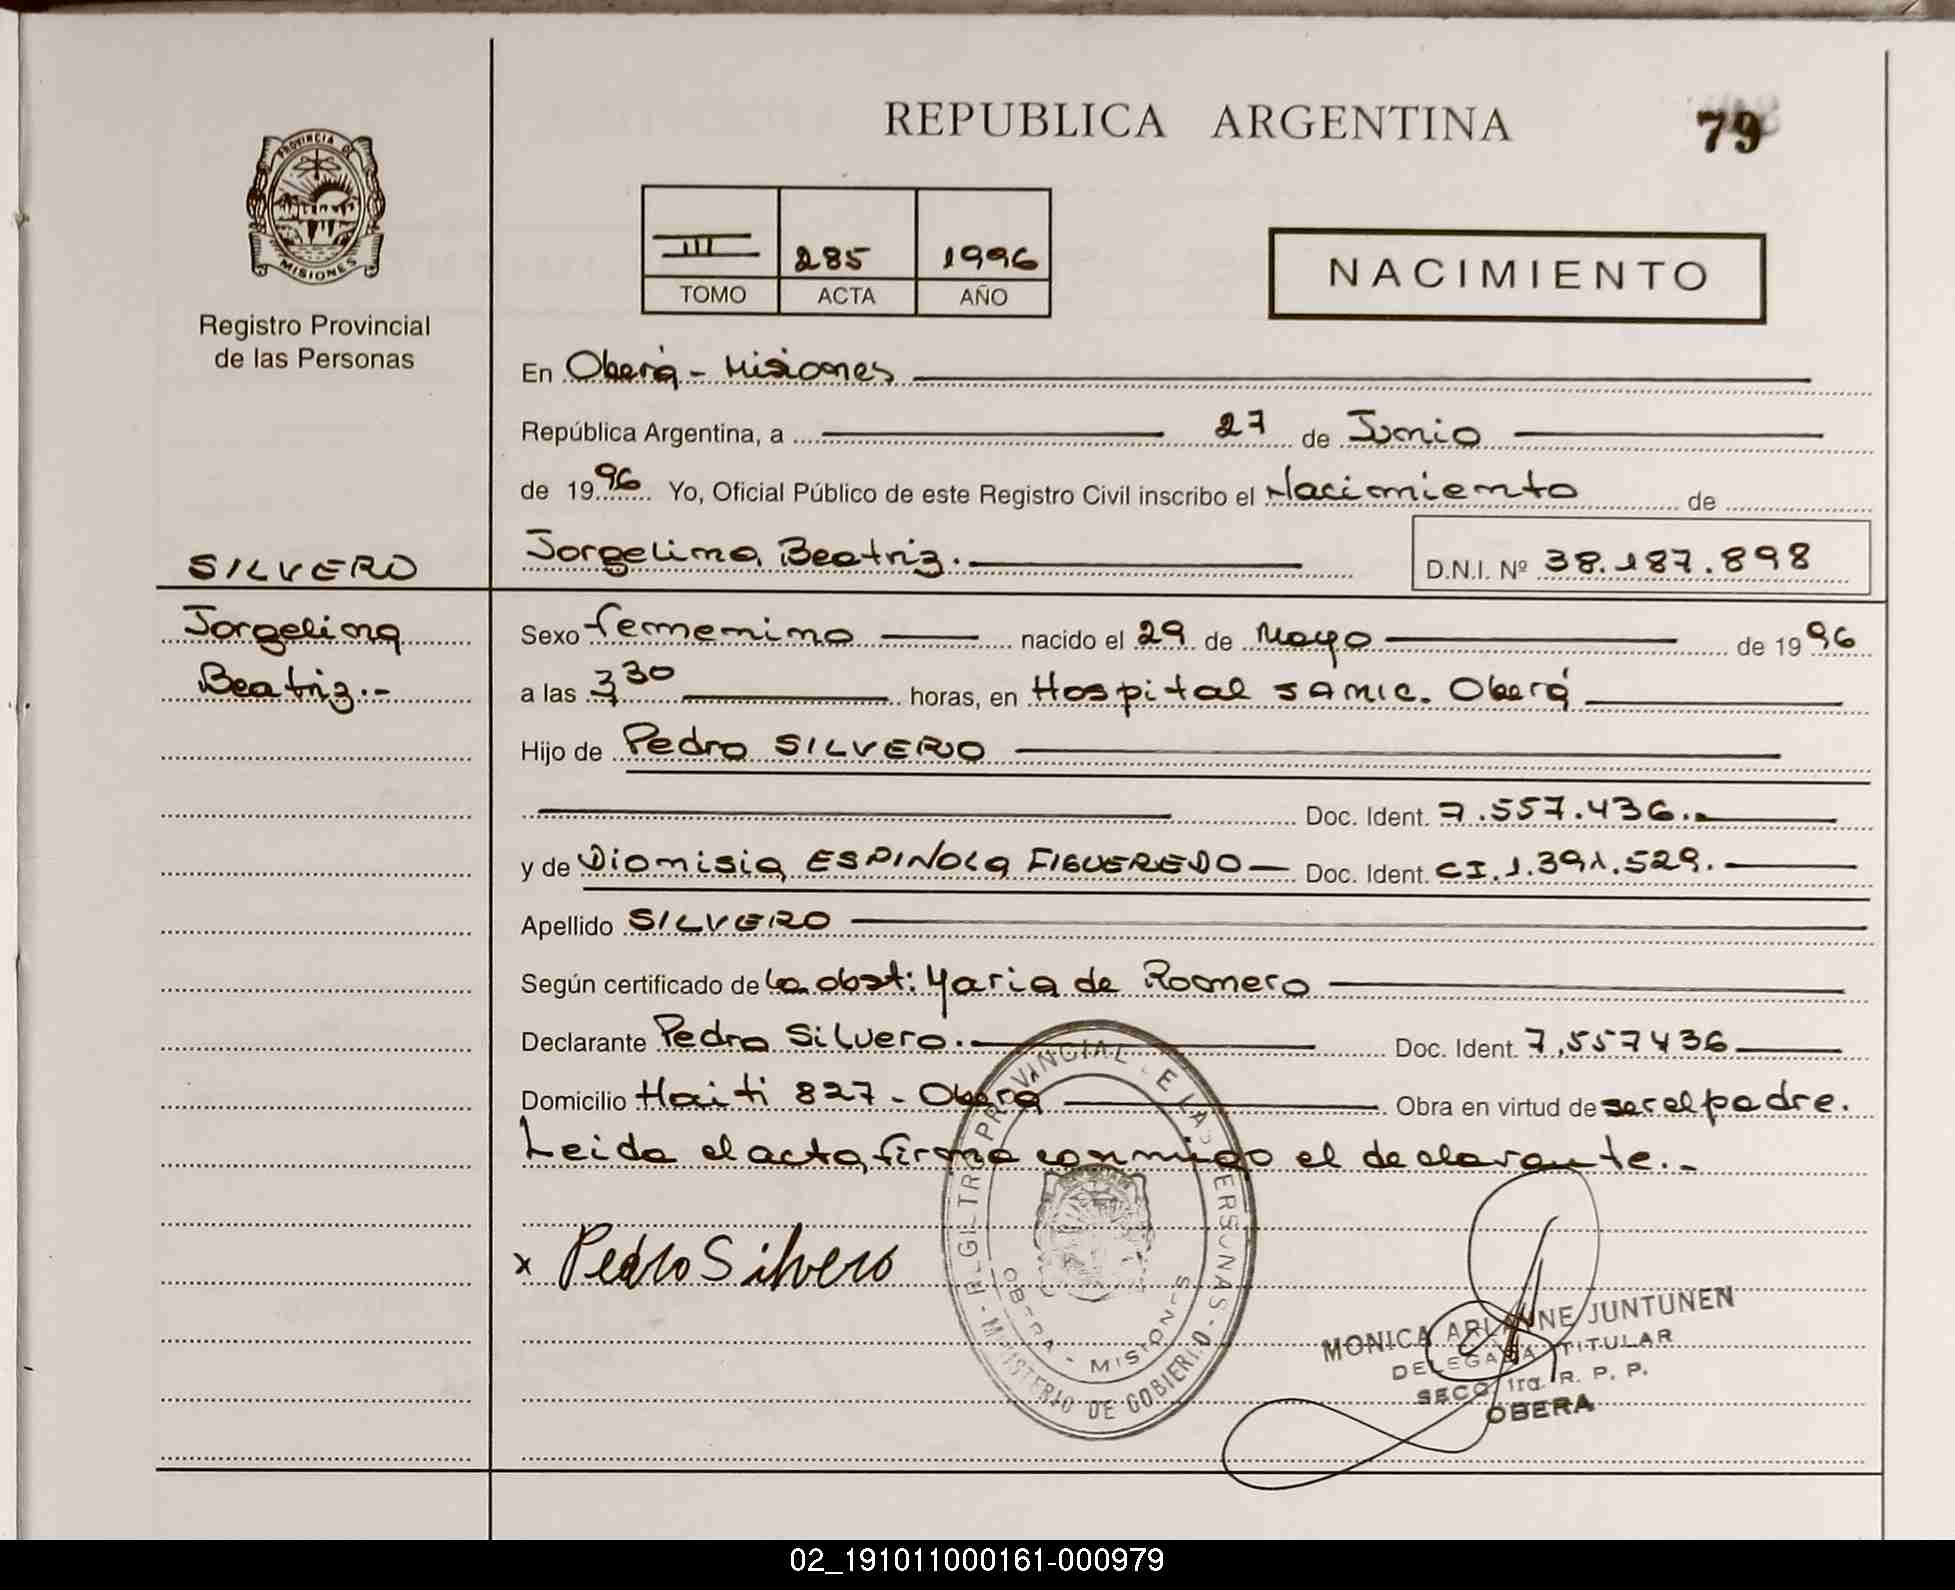 REPUBLICA ARGENTINA
79
PROVINCIA DE
MISIONES
Registro Provincial
de las Personas
III 285 1996
TOMO ACTA AÑO
NACIMIENTO
En Oberá - Misiones
República Argentina, a 27 de Junio
de 1996 Yo, Oficial Público de este Registro Civil inscribo el Nacimiento de
SILVERO
Jorgelina Beatriz.
D.N.I. Nº 38.187.898
Jorgelina
Beatriz.-
Sexo femenino nacido el 29 de Mayo de 1996
a las 3 30 horas, en Hospital SAMIC. Oberá
Hijo de Pedro SILVERO
Doc. Ident. 7.557.436.
y de Dionisia ESPINOLA FIGUEREDO Doc. Ident. CI.1.391.529.
Apellido SILVERO
Según certificado de la obst: Maria de Romero
Declarante Pedro Silvero. Doc. Ident. 7.557436
Domicilio Haiti 827 - Oberá Obra en virtud de ser el padre.
Leida el acta, firma conmigo el declarante.-
x Pedro Silvero
REGISTRO PROVINCIAL DE LAS PERSONAS - MINISTERIO DE GOBIERNO
OBERA - MISIONES
MONICA JUNTUNEN
DELEGADA TITULAR
SECC. 1ra. R. P. P.
OBERA
02_191011000161-000979